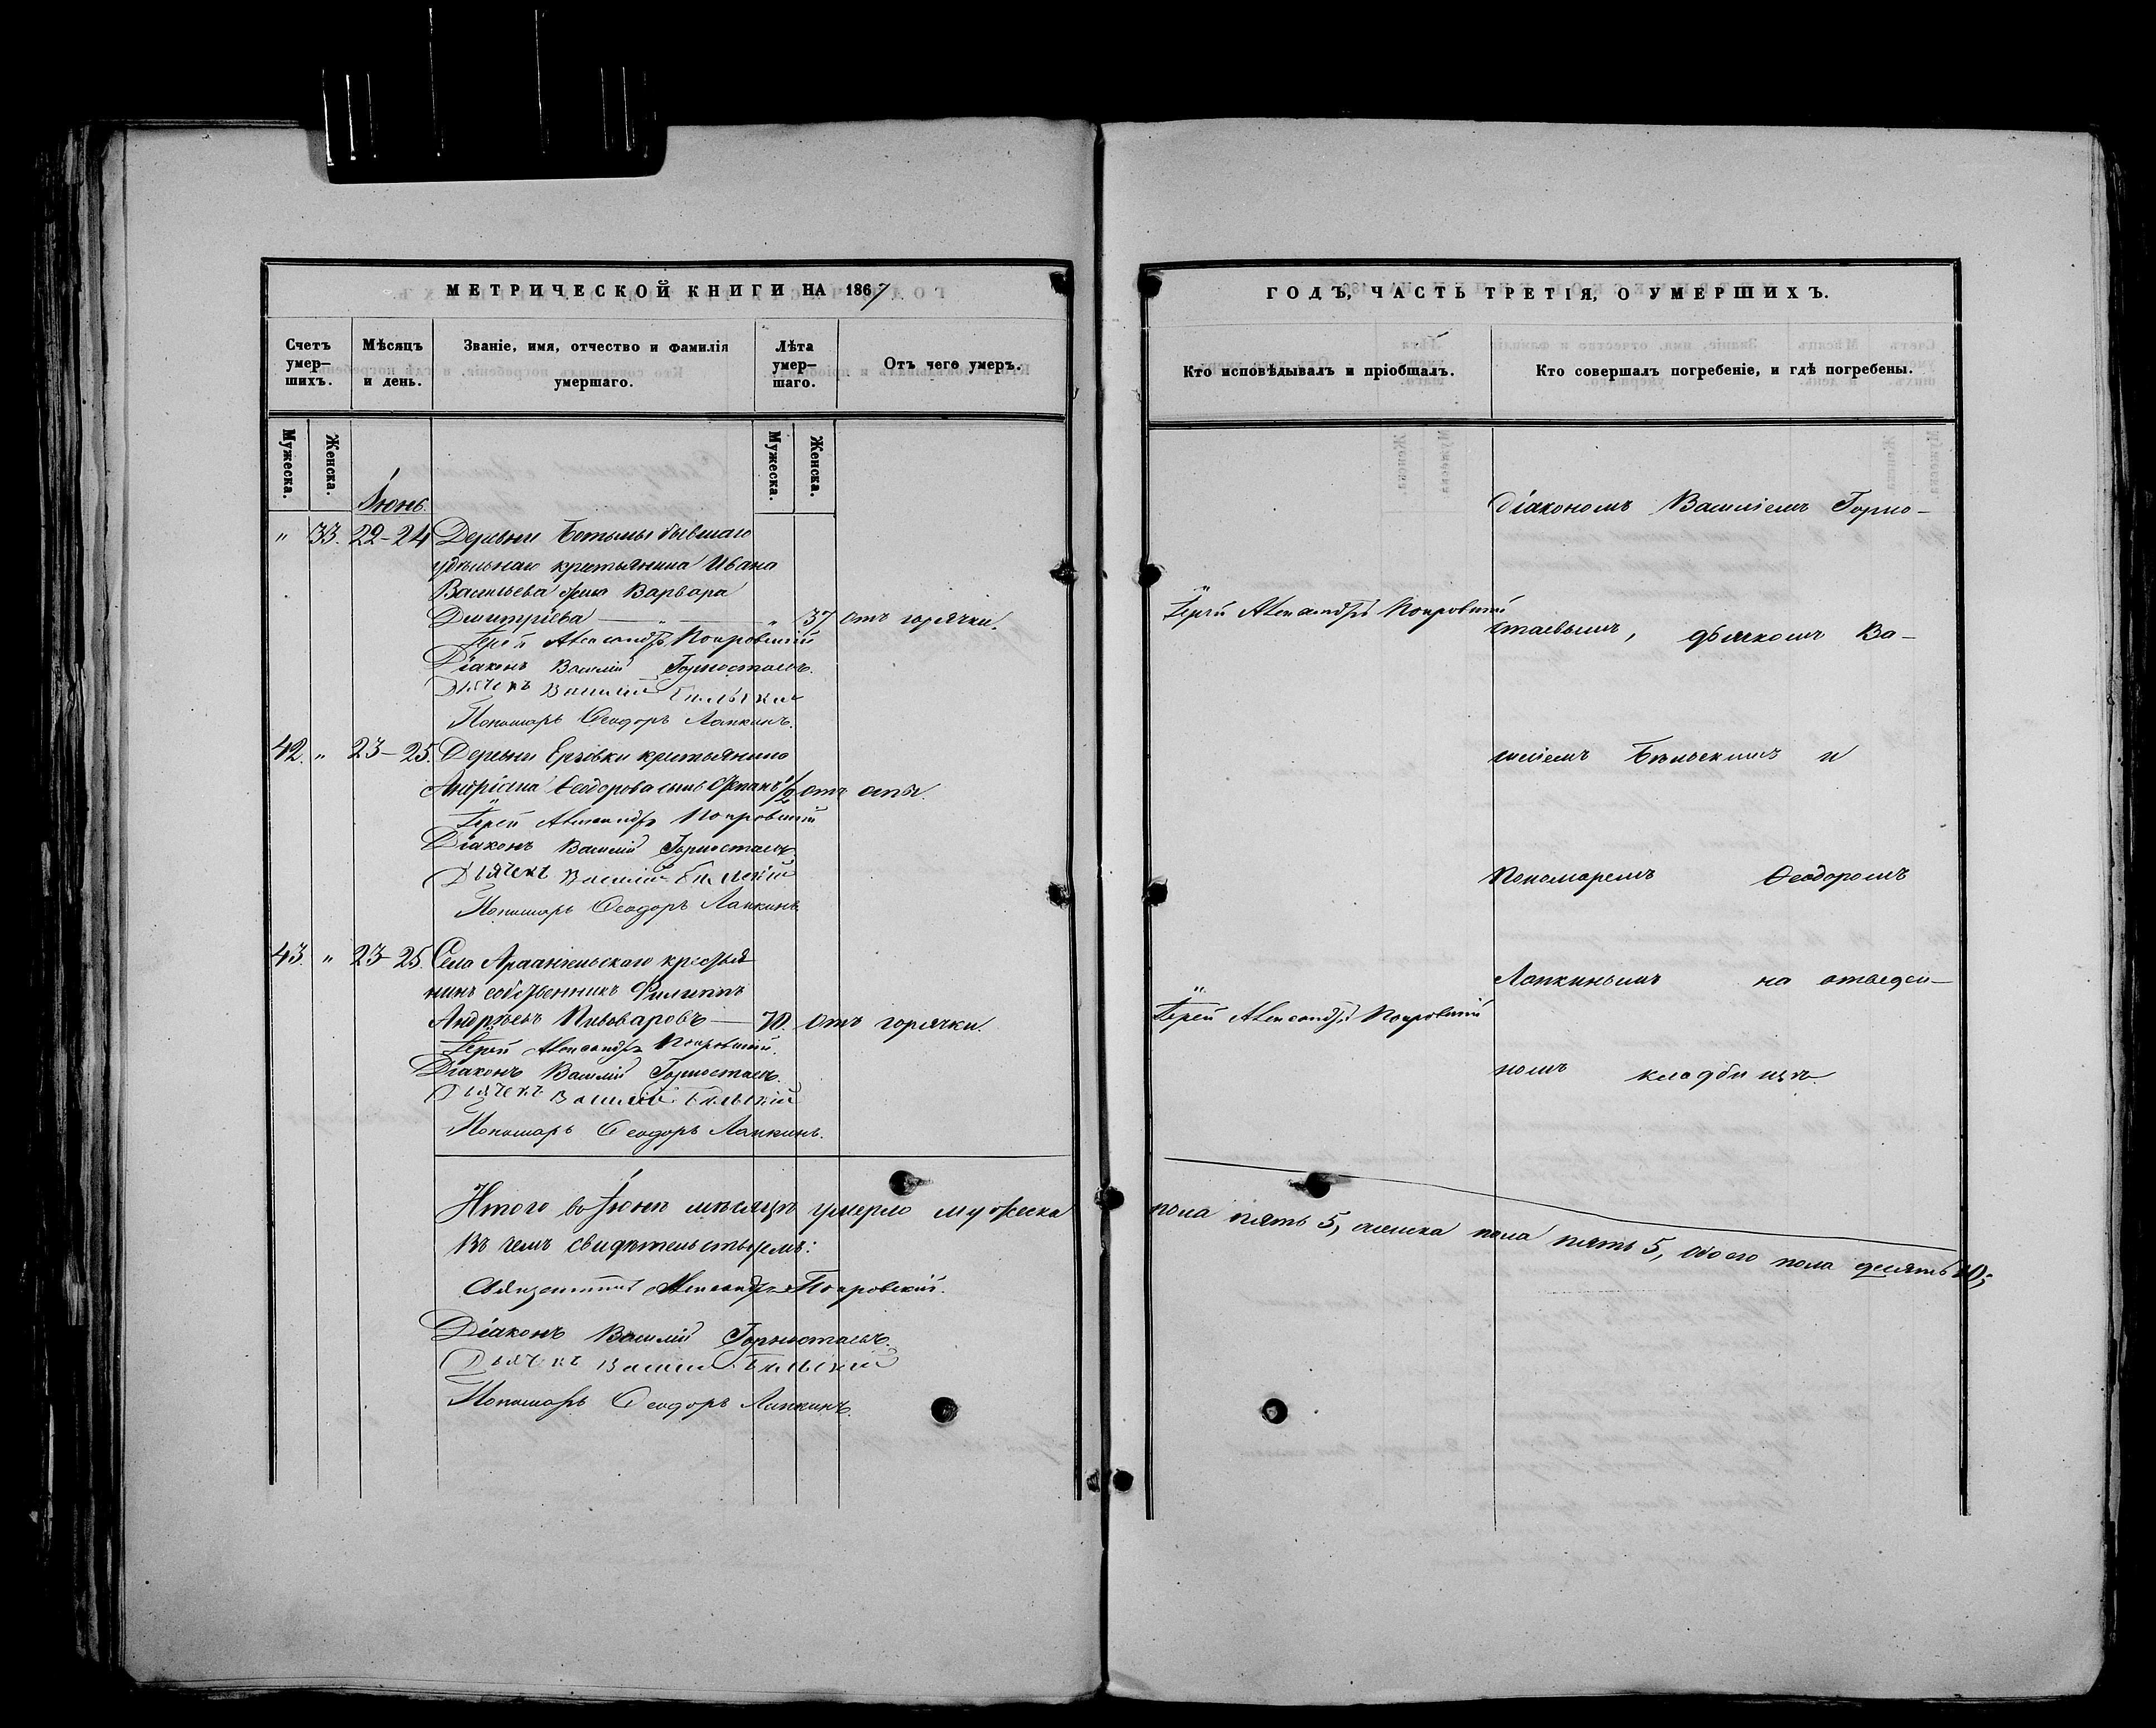 МЕТРИЧЕСКОЙ КНИГИ НА 1867
Счетъ умер-шихъ.
Мѣсяцъ и день.
Званіе, имя, отчество и фамилія умершаго.
Лѣта умер-шаго.
Отъ чего умеръ.
Мужеска.
Женска.
Мужеска.
Женска.
Іюнь.
" 33. 22-24 Деревни Ботьмы бывшаго
удѣльнаго крестьянина Ивана
Васильева жена Варвара
Димитріева — " — " 37 отъ горячки.
Іерей Александръ Покровскій
Діаконъ Василій Горностаевъ.
Дьячекъ Василій Бѣльскій
Пономарь Ѳеодоръ Лапкинъ.
42. " 23-25. Деревни Ерзовки крестьянина
Андріана Ѳеодорова сынъ 1/2 отъ оспы.
Іерей Александръ Покровскій
Діаконъ Василій Горностаевъ.
Дьячекъ Василій Бѣльскій
Пономарь Ѳеодоръ Лапкинъ.
43. " 23-25. Села Архангельскаго крестья
нинъ собственникъ Филиппъ
Андреевъ Пивоваровъ — 70. отъ горячки.
Іерей Александръ Покровскій.
Діаконъ Василій Горностаевъ.
Дьячекъ Василій Бѣльскій
Пономарь Ѳеодоръ Лапкинъ.
Итого во Іюнѣ мѣсяцѣ умерло мужеска
Въ чемъ свидѣтельствуемъ:
Священникъ Александръ Покровскій.
Діаконъ Василій Горностаевъ.
Дьячекъ Василій Бѣльскій
Пономарь Ѳеодоръ Лапкинъ.
ГОДЪ, ЧАСТЬ ТРЕТІЯ, О УМЕРШИХЪ.
Кто исповѣдывалъ и пріобщалъ.
Кто совершалъ погребеніе, и гдѣ погребены.
Діакономъ Василіемъ Горно-
Іерей Александръ Покровскій
стаевымъ, дьячкомъ Ва-
силіемъ Бѣльскимъ и
Пономаремъ Ѳеодоромъ
Лапкинымъ на отведен-
Іерей Александръ Покровскій
номъ кладбищѣ.
пола пять 5, женска пола пять 5, обоего пола десять 10;